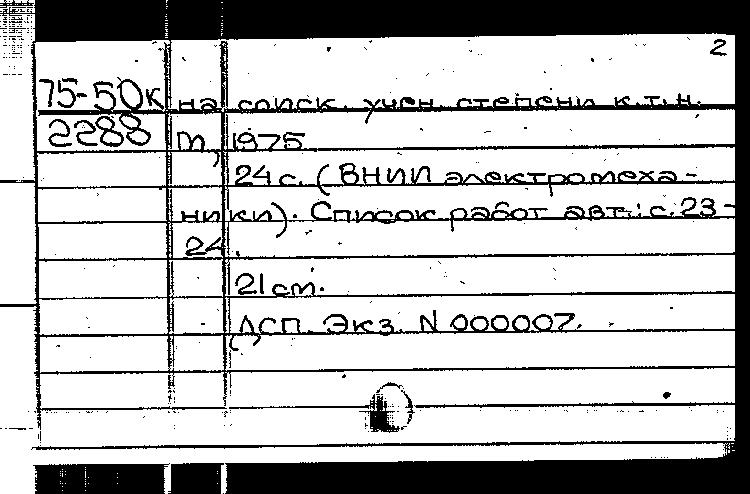 2
75-50к на соиск. учен. степени к.т.н.
2288 М, 1975
24 с. (ВНИИ электромеха-
ники). Список работ авт.: с. 23-
24.
21 см.
ДСП. Экз. N 000007.